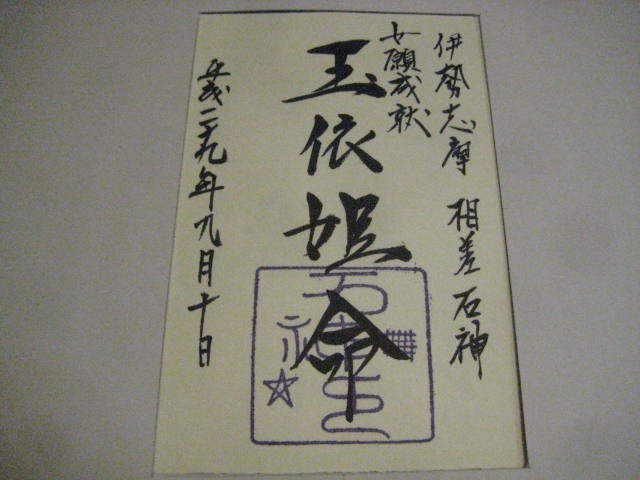 伊勢志摩 相差 石神
女願成就
玉依姫命
平成二十九年九月十日